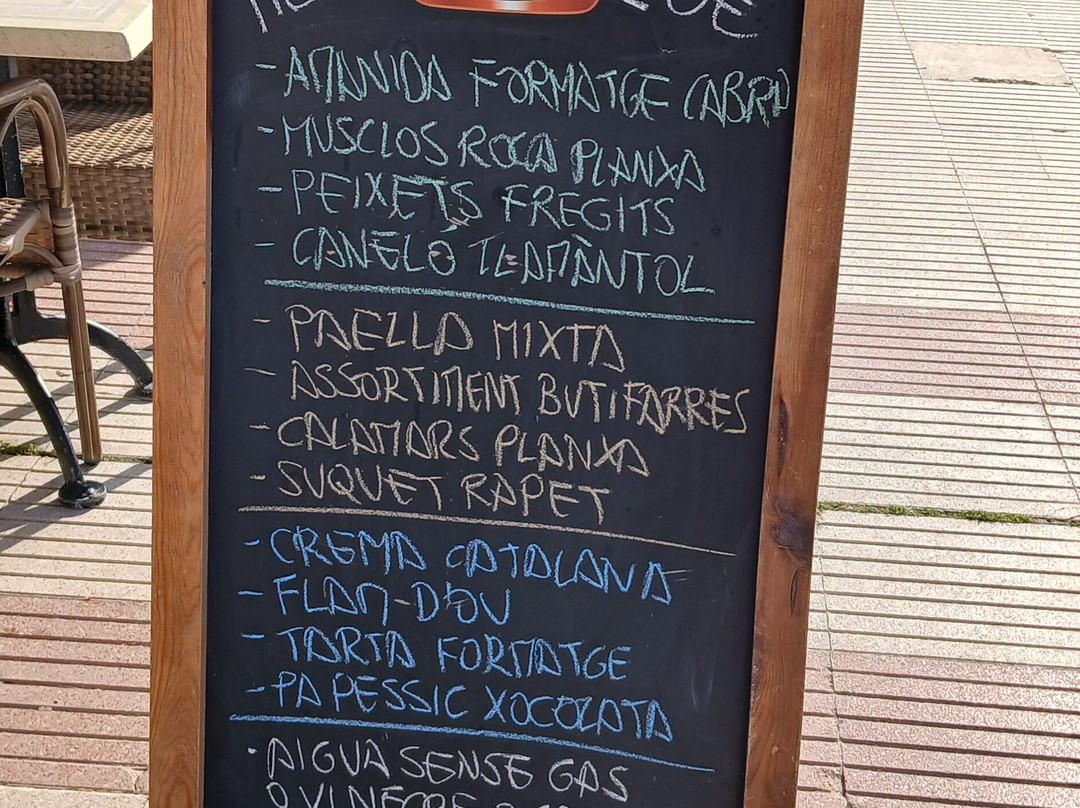 - AMANIDA FORMATGE CABRA
- MUSCLOS ROCA PLANXA
- PEIXETS FREGITS
- CANELÓ LLAMÀNTOL
- PAELLA MIXTA
- ASSORTIMENT BUTIFARRES
- CALAMARS PLANXA
- SUQUET RAPET
- CREMA CATALANA
- FLAM D'OU
- TARTA FORMATGE
- PA PESSIC XOCOLATA
· AIGUA SENSE GAS
O VI NEGRE